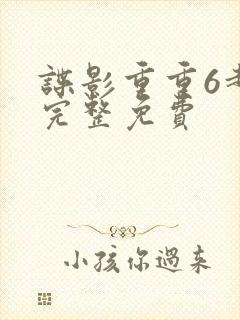 諜影重重6
完整免費
小孩你過来